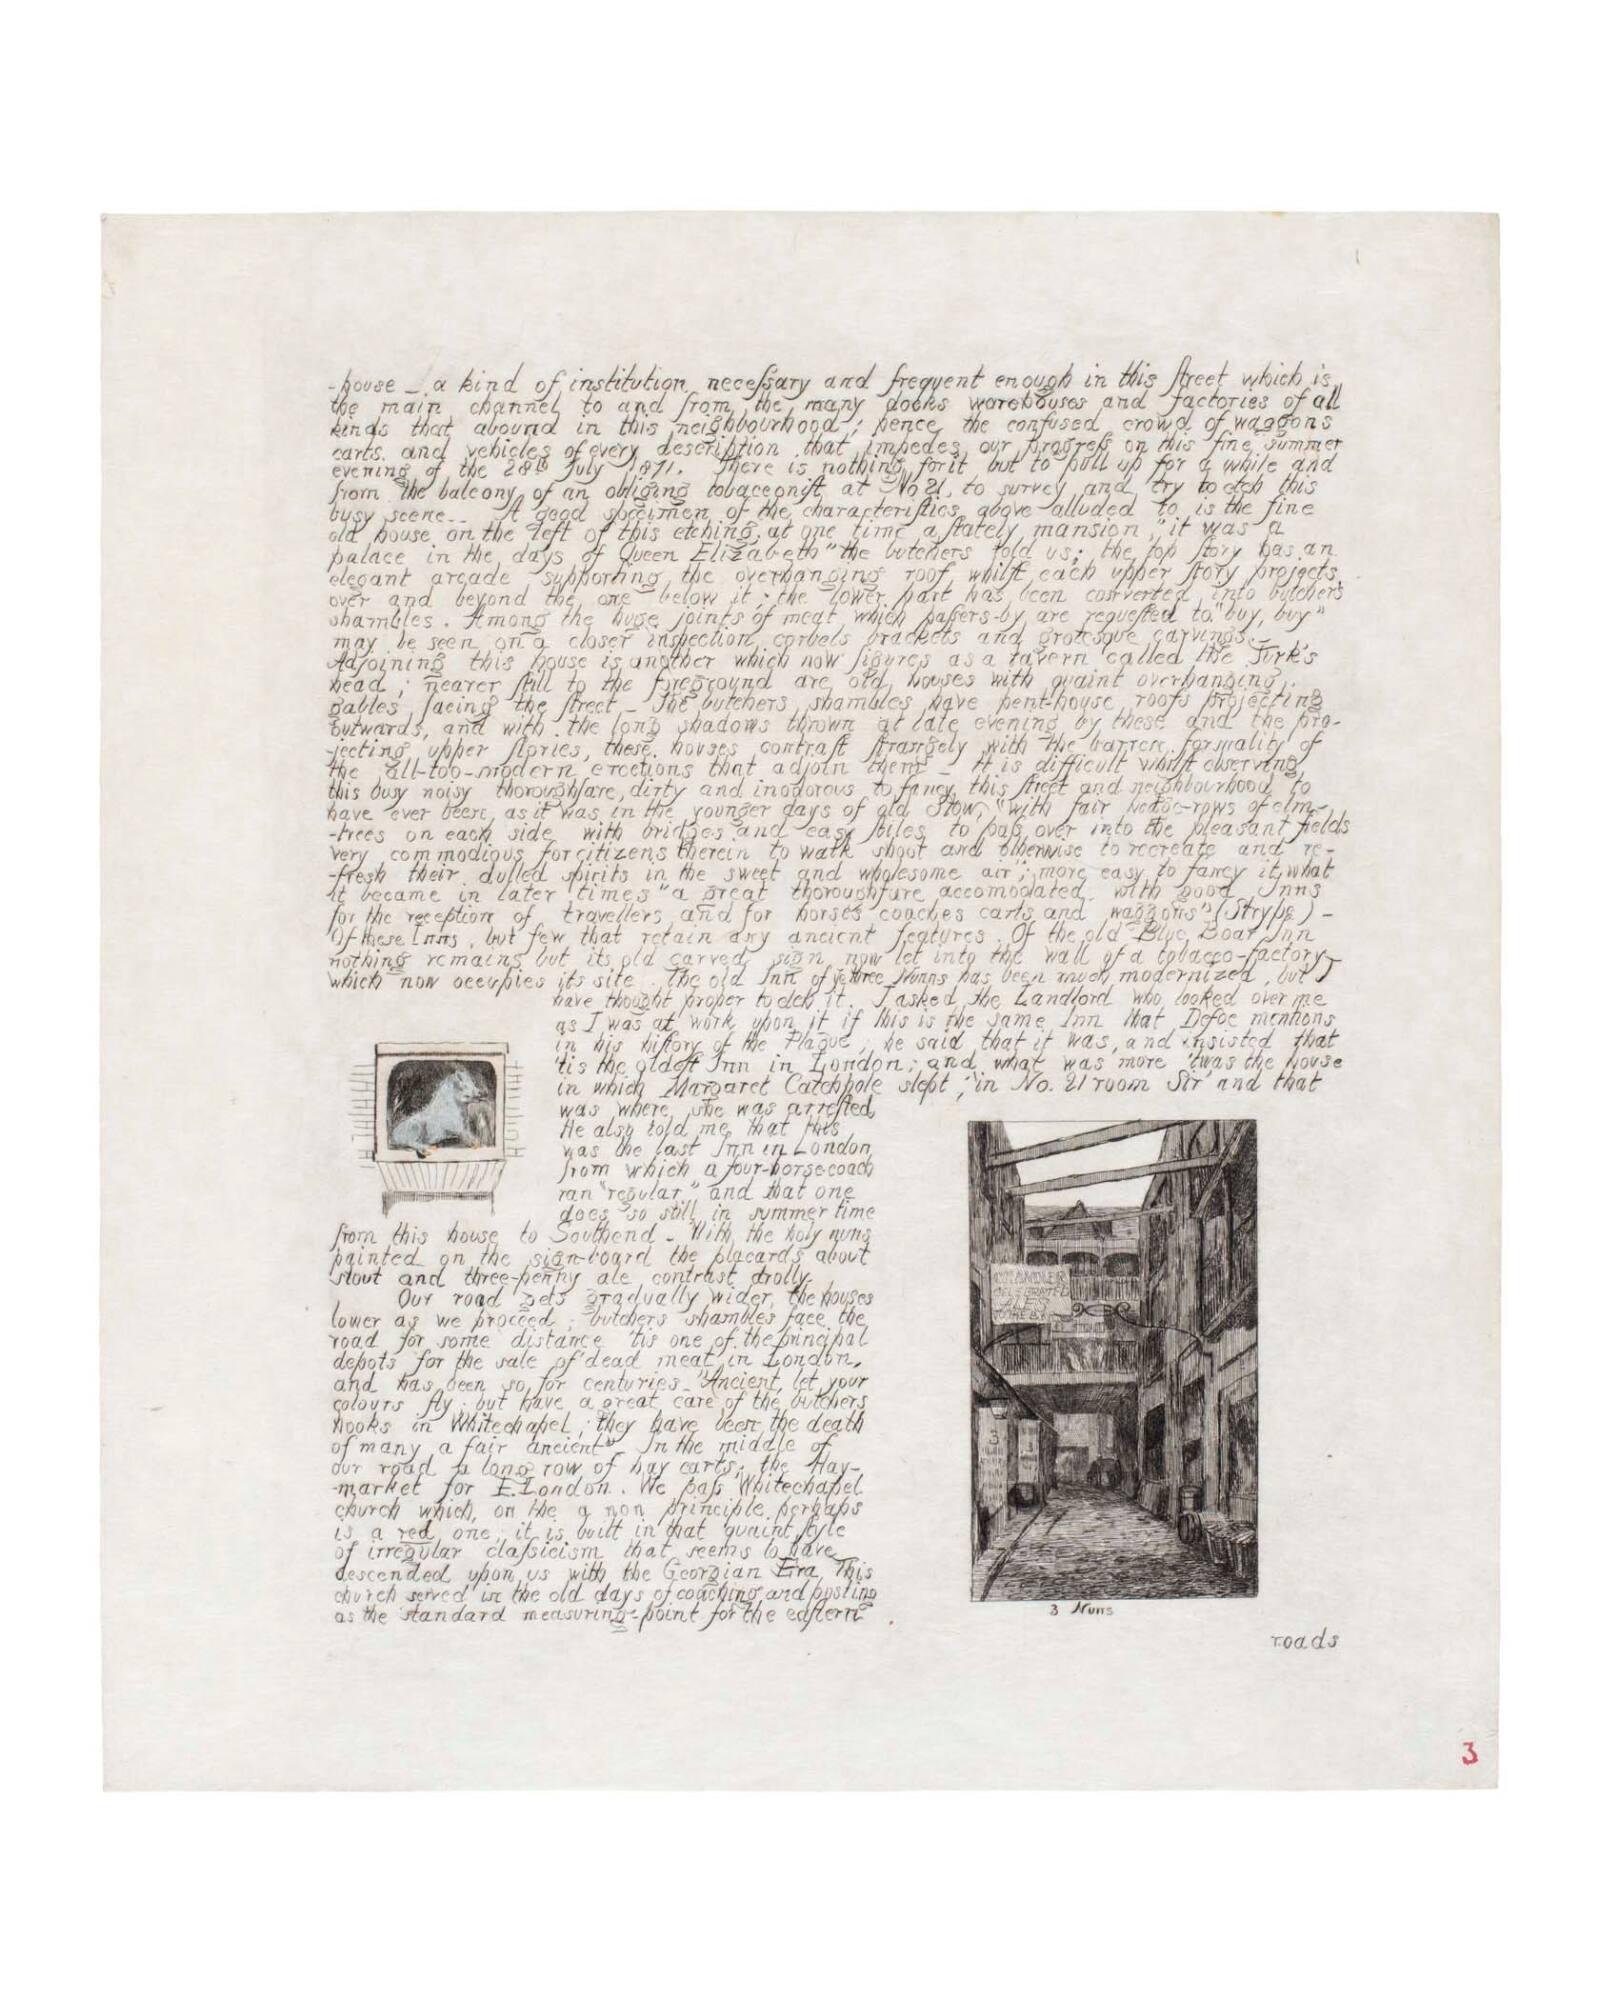 -house _ a kind of institution necessary and frequent enough in this street which is
the main channel to and from the many docks warehouses and factories of all
kinds that abound in this neighbourhood; hence the confused crowd of waggons
carts and vehicles of every description that impedes our progress on this fine summer
evening of the 28th July 1871. There is nothing for it but to pull up for a while and
from the balcony of an obliging tobacconist at No 21, to survey and try to etch this
busy scene__ A good specimen of the characteristics above alluded to is the fine
old house on the left of this etching, at one time a stately mansion, "it was a
palace in the days of Queen Elizabeth" the butchers told us; the top story has an
elegant arcade supporting the overhanging roof, whilst each upper story projects
over and beyond the one below it; the lower part has been converted into butchers
shambles. Among the huge joints of meat which passers-by are requested to "buy, buy"
may be seen on a closer inspection corbels brackets and grotesque carvings.
Adjoining this house is another which now figures as a tavern called the Turk's
head; nearer still to the foreground are old houses with quaint overhanging
gables facing the street _ The butchers shambles have pent-house roofs projecting
outwards, and with the long shadows thrown at late evening by these and the pro-
-jecting upper stories, these houses contrast strangely with the barren formality of
the all-too-modern erections that adjoin them _ It is difficult whilst observing
this busy noisy thoroughfare, dirty and inodorous to fancy this street and neighbourhood to
have ever been, as it was in the younger days of old Stow, "with fair hedge-rows of elm-
-trees on each side with bridges and easy stiles to pass over into the pleasant fields
very commodious for citizens therein to walk shoot and otherwise to recreate and re-
-fresh their dulled spirits in the sweet and wholesome air"; more easy to fancy it what
it became in later times "a great thoroughfare accomodated with good Inns
for the reception of travellers and for horses coaches carts and waggons" (Strype) _
Of these Inns, but few that retain any ancient features. Of the old Blue Boar Inn
nothing remains but its old carved sign now let into the wall of a tobacco-factory
which now occupies its site. The old Inn of ye three Nunns has been much modernized, but I
have thought proper to etch it. I asked the Landlord who looked over me
as I was at work upon it if this is the same Inn that Defoe mentions
in his history of the Plague; he said that it was, and insisted that
'tis the oldest Inn in London; and what was more 'twas the house
in which Margaret Catchpole slept; 'in No. 21 room Sir' and that
was where she was arrested.
He also told me that this
was the last Inn in London
from which a four-horse coach
ran "regular" and that one
does so still in summer time
from this house to Southend _ With the holy nuns
painted on the sign-board the placards about
stout and three-penny ale contrast drolly.
Our road gets gradually wider, the houses
lower as we proceed; butchers shambles face the
road for some distance 'tis one of the principal
depots for the sale of dead meat in London,
and has been so for centuries _ "Ancient, let your
colours fly; but have a great care of the butchers
hooks in Whitechapel; they have been the death
of many a fair ancient" In the middle of
our road a long row of hay carts; the Hay-
-market for E.London. We pass Whitechapel
church which, on the a non principle perhaps
is a red one; it is built in that quaint style
of irregular classicism that seems to have
descended upon us with the Georgian Era. This
church served in the old days of coaching and posting
as the standard measuring-point for the eastern
CHANDLER
CELEBRATED
ALES
3 Nuns
roads
3